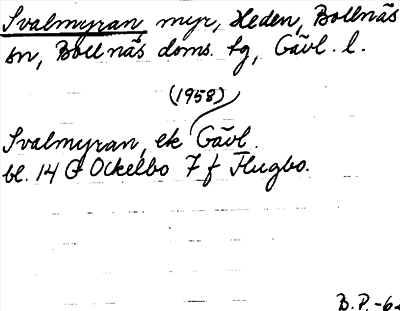 Svalmyran myr, Heden, Bollnäs
sn, Bollnäs doms. tg, Gävl. l.
(1958)
Svalmyran, ek Gävl.
bl. 14 G Ockelbo 7 f Flugbo.
B.P.-6